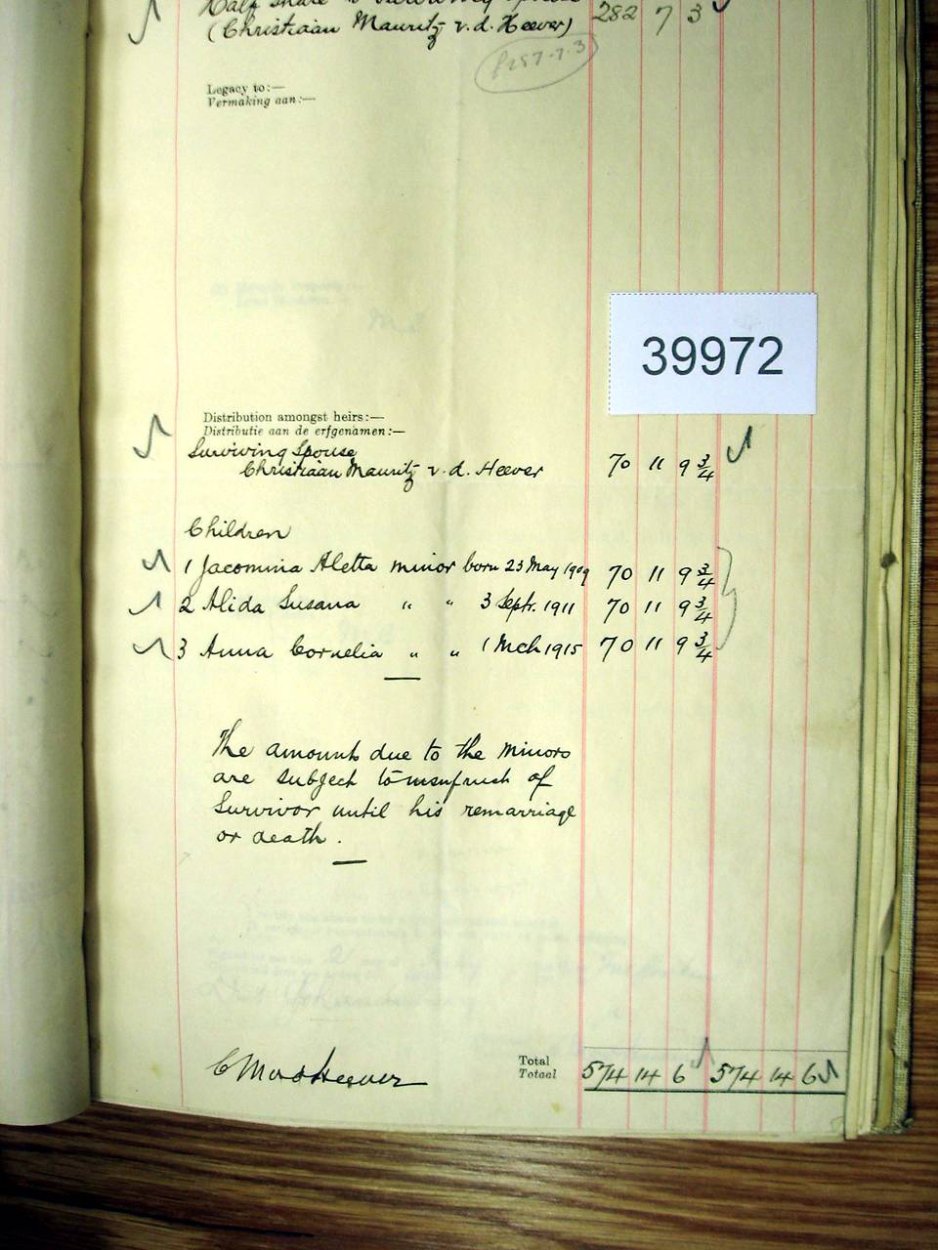 Half share
(Christiaan Mauritz v.d. Heever) 282 7 3
Legacy to:—
Vermaking aan:—
39972
Distribution amongst heirs:—
Distributie aan de erfgenamen:—
Surviving Spouse
Christiaan Mauritz v.d. Heever 70 11 9 3/4
Children
1 Jacomina Aletta minor born 23 May 1909 70 11 9 3/4
2 Alida Susana " " 3 Septr. 1911 70 11 9 3/4
3 Anna Cornelia " " 1 Mch 1915 70 11 9 3/4
The amounts due to the minors
are subject to usufruct of
Survivor until his remarriage
or death.
CM v d Heever
Total
Totaal 574 14 6 574 14 6